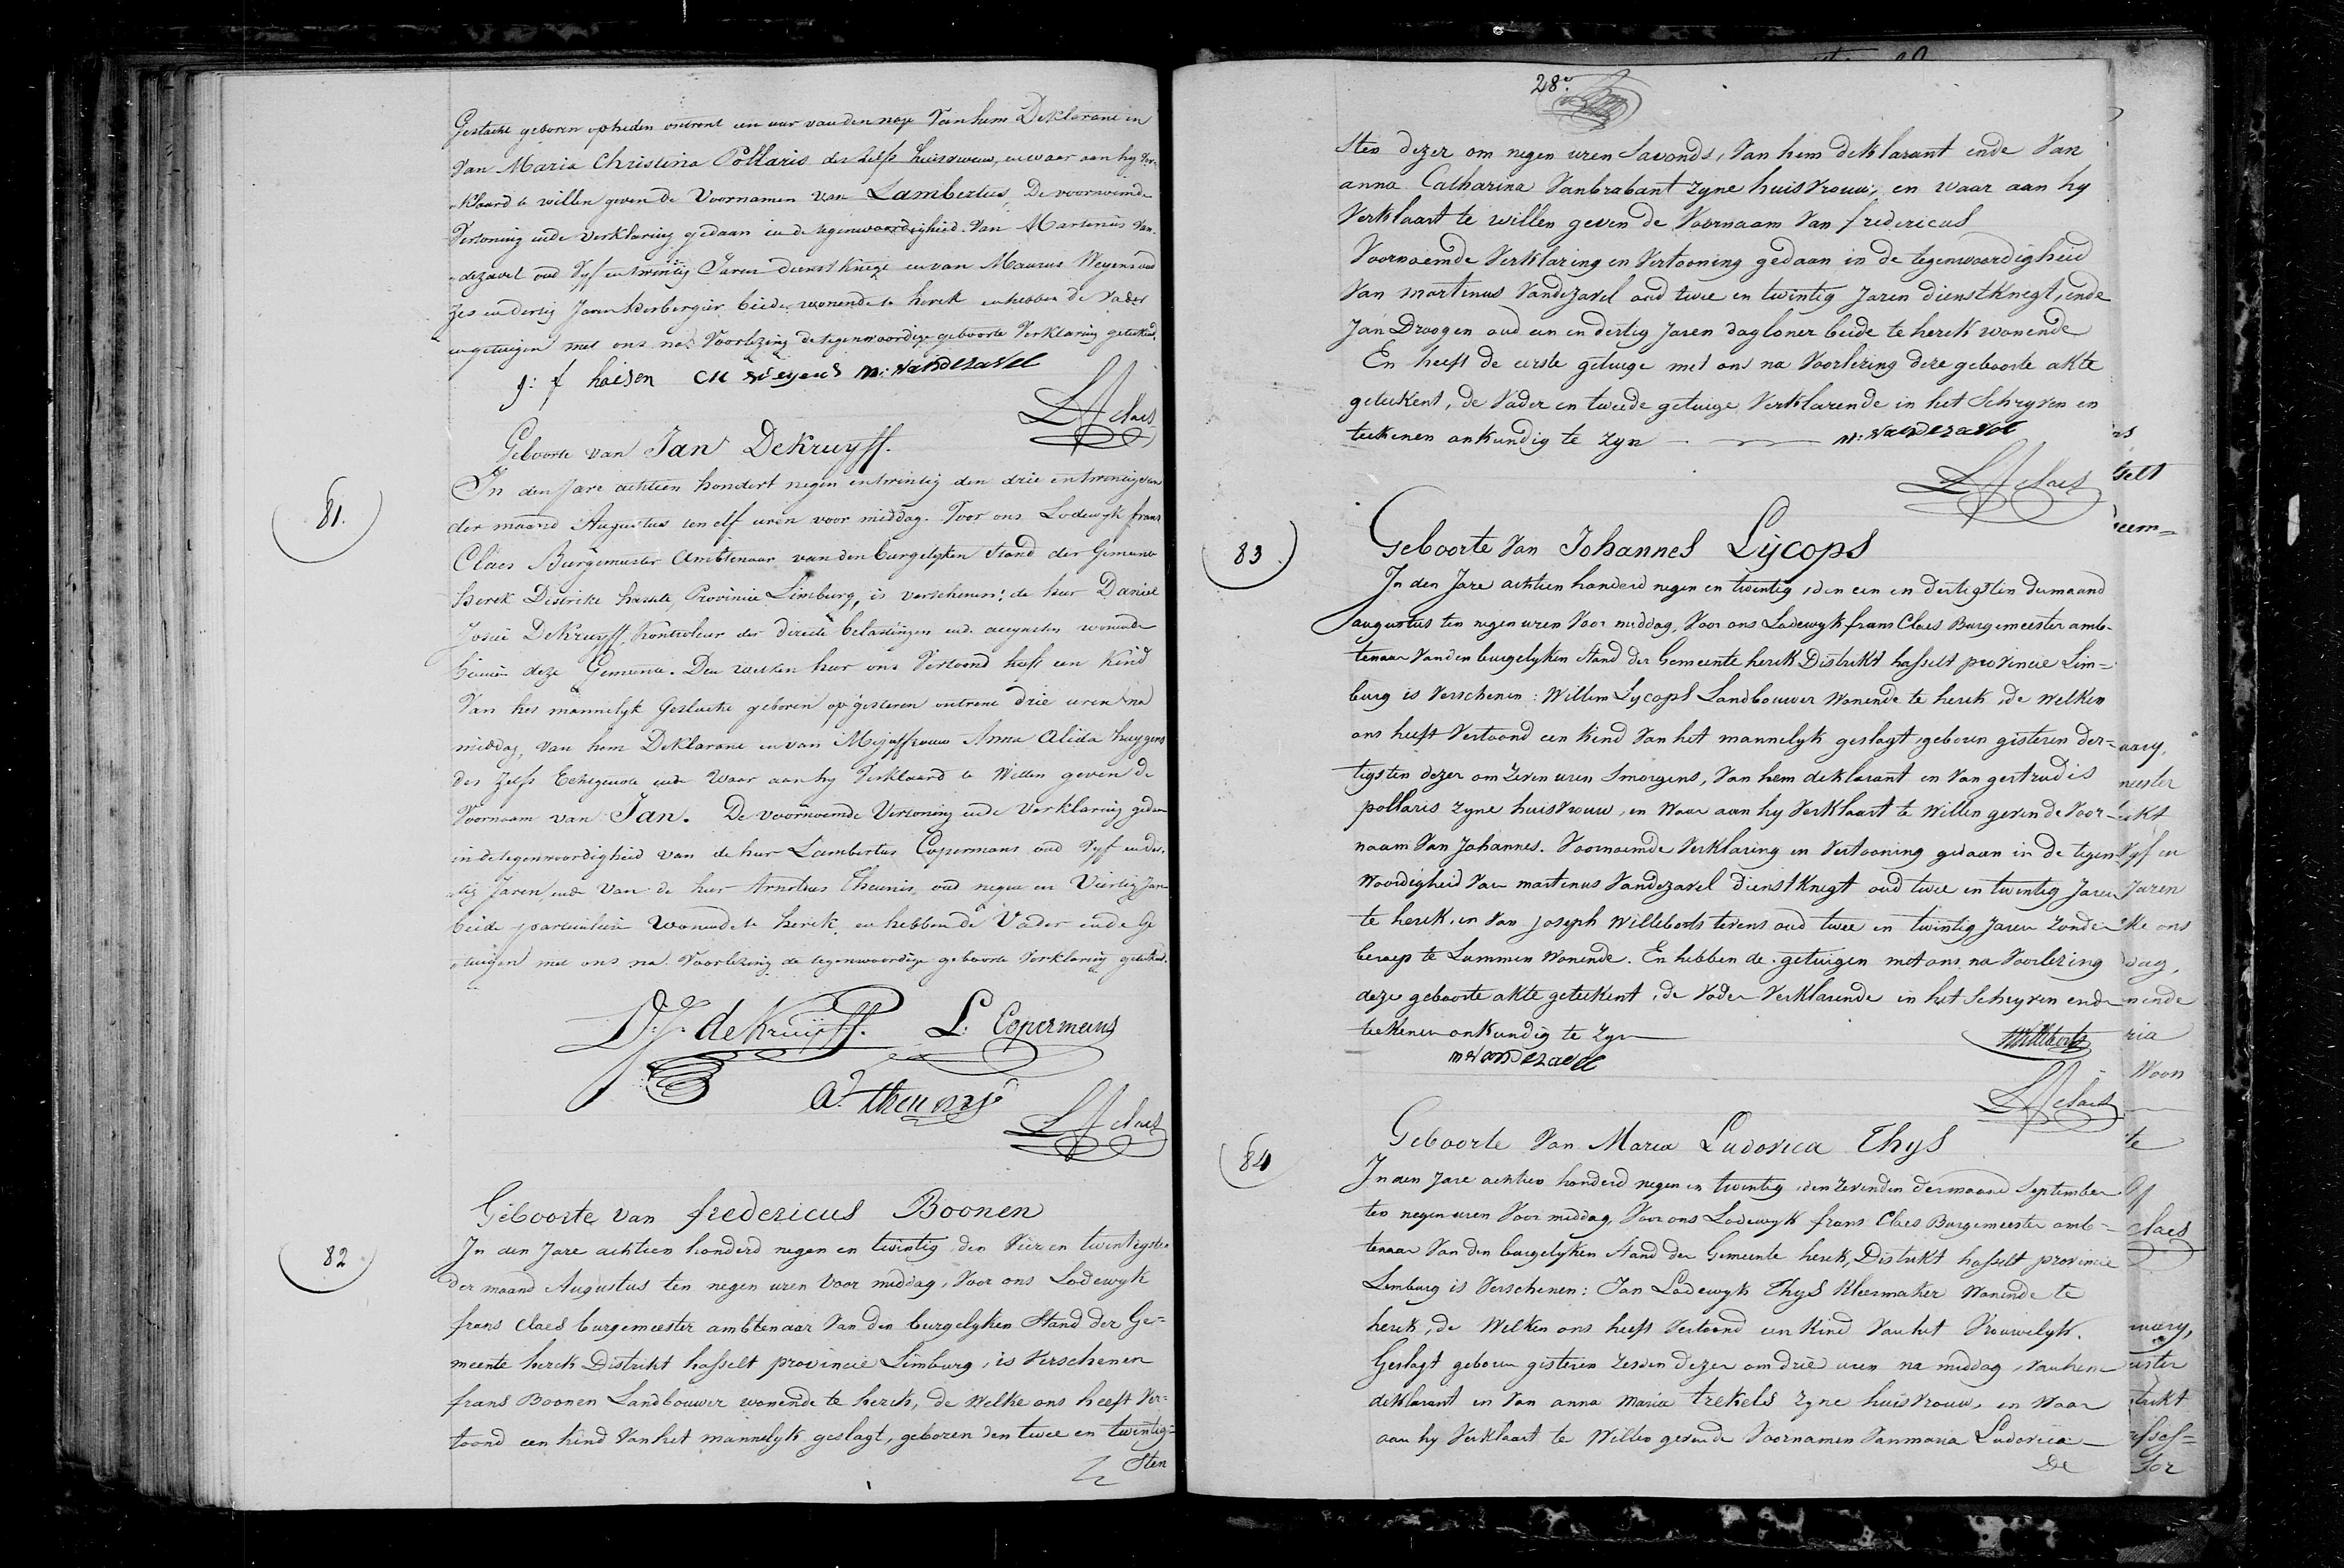 Geslacht geboren op heden ontrent een uur van den nage Van hem Deklarant en
Van Maria Christina Pollaris des zelfs huisvrouw, en waar aan hy Ver-
-klaard te willen geven de Voornamen van Lambertus, De voornoemde
Vertoning ende verklaring gedaan in de tegenwoordigheid van Martenus Van-
-dezavel oud Vyf en twintig Jaren dienstknegt en van Maurus Weyens oud
Zes en dertig Jaren Herbergier beide wonende te herck en hebben de Vader
en getuigen met ons na Voorlezing de tegenwoordige geboorte Verklaring geteekend.
J: f haesen CM weyens M: Vandezavel
LF Claes
Geboorte van Jan DeKruyff.
81.
In den Jare achtien hondert negen en twintig den drie en twintig van
der maand Augustus ten elf uren voor middag. Voor ons Lodewyk frans
Claes Burgemeester Ambtenaar van den burgelyken stand der Gemeente
Herck Distrikt hasselt, Provincie Limburg, is verschenen: de heer Daniel
Josué DeKruyff, Kontroleur der directe belastingen ende accynsten wonende
binnen deze Gemeente. Den welken heer ons Vertoond heeft een Kind
Van het mannelyk Geslacht geboren op gisteren ontrent drie uren na
middag, van hem Deklarant en van Mejuffrouw Anna Alida huygens
des zelfs Echtgenote ende Waar aan hy Verklaard te Willen geven de
Voornaam van Jan. De voornoemde Vertoning ende Verklaring gedaan
in de tegenwoordigheid van de heer Lambertus Copermans oud Vyf en der-
-tig Jaren, ende Van de heer Arnoldus Theunis, oud negen en Viertig Jaren
beide particuliere Wonende te herck, en hebben de Vader ende Ge
-tuigen met ons na Voorlezing de tegenwoordige geboorte Verklaring geteekend.
D. J. deKruijff. L: Copermans
A: theunis
LF Claes
Geboorte van fredericus Boonen
82
In den Jare achtien honderd negen en twintig den Vier en twintigsten
der maand Augustus ten negen uren voor middag, Voor ons Lodewyk
frans Claes burgemeester ambtenaar Van den burgelyken Stand der Ge=
meente herck Distrikt hasselt provincie Limburg, is Verschenen
frans Boonen Landbouwer wonende te herck, de Welke ons heeft Ver=
toond een kind Van het mannelyk geslagt, geboren den twee en twintig=
Sten
28e
Sten dezer om negen uren Savonds, Van hem deklarant ende Van
anna Catharina Vanbrabant zyne huisvrouw, en waar aan hy
Verklaart te willen geven de Voornaam Van fredericus
Voornoemde Verklaring en Vertooning gedaan in de tegenwoordigheid
Van martinus Vandezavel oud twee en twintig Jaren dienstknegt, ende
Jan Droogen oud een en dertig Jaren dagloner beide te herck wonende
En heeft de eerste getuige met ons na Voorlezing deze geboorte akte
geteekent, de Vader en tweede getuige Verklarende in het Schryven en
teekenen onkundig te zyn M: Vandezavel
LF Claes
Geboorte Van Johannes Lycops
83
In den Jare achtien honderd negen en twintig, den een en dertigsten der maand
augustus ten negen uren Voor middag, Voor ons Lodewyk frans Claes Burgemeester amb-
tenaar Van den burgelyken Stand der Gemeente herck Distrikt hasselt provincie Lim=
burg is Verschenen: Willem Lycops Landbouwer Wonende te herck, de Welken
ons heeft Vertoond een Kind Van het mannelyk geslagt, geboren gisteren der=
tigsten dezer om Zeven uren Smorgens, Van hem deklarant en Van gertrudis
pollaris zyne huisvrouw, en Waar aan hy Verklaart te Willen geven de Voor-
naam Van Johannes. Voornoemde Verklaring en Vertooning gedaan in de tegen-
Woordigheid Van martinus Vandezavel dienstknegt oud twee en twintig Jaren
te herck, en Van Joseph Willebords tevens oud twee en twintig Jaren zonder
beroep te Lummen Wonende. En hebben de getuigen met ons na Voorlezing
deze geboorte akte geteekent, de Vader Verklarende in het Schryven ende
teekenen onkundig te zyn
M: Vandezavel
LF Claes
Geboorte Van Maria Ludovica Thys
84
In den Jare achtien honderd negen en twintig, den Zevenden der maand September
ten negen uren Voor middag, Voor ons Lodewyk frans Claes Burgemeester amb-
tenaar Van den burgelyken Stand der Gemeente herck, Distrikt hasselt provincie
Limburg is Verschenen: Jan Lodewyk Thys Kleermaker Wonende te
herck, de Welken ons heeft Vertoond een Kind Van het Vrouwelyk.
Geslagt geboren gisteren zesden dezer om drie uren na middag, van hem
deklarant en Van anna Maria trekels zyne huisvrouw, en Waar
aan hy Verklaart te Willen geven de Voornamen Van maria Ludovica
De